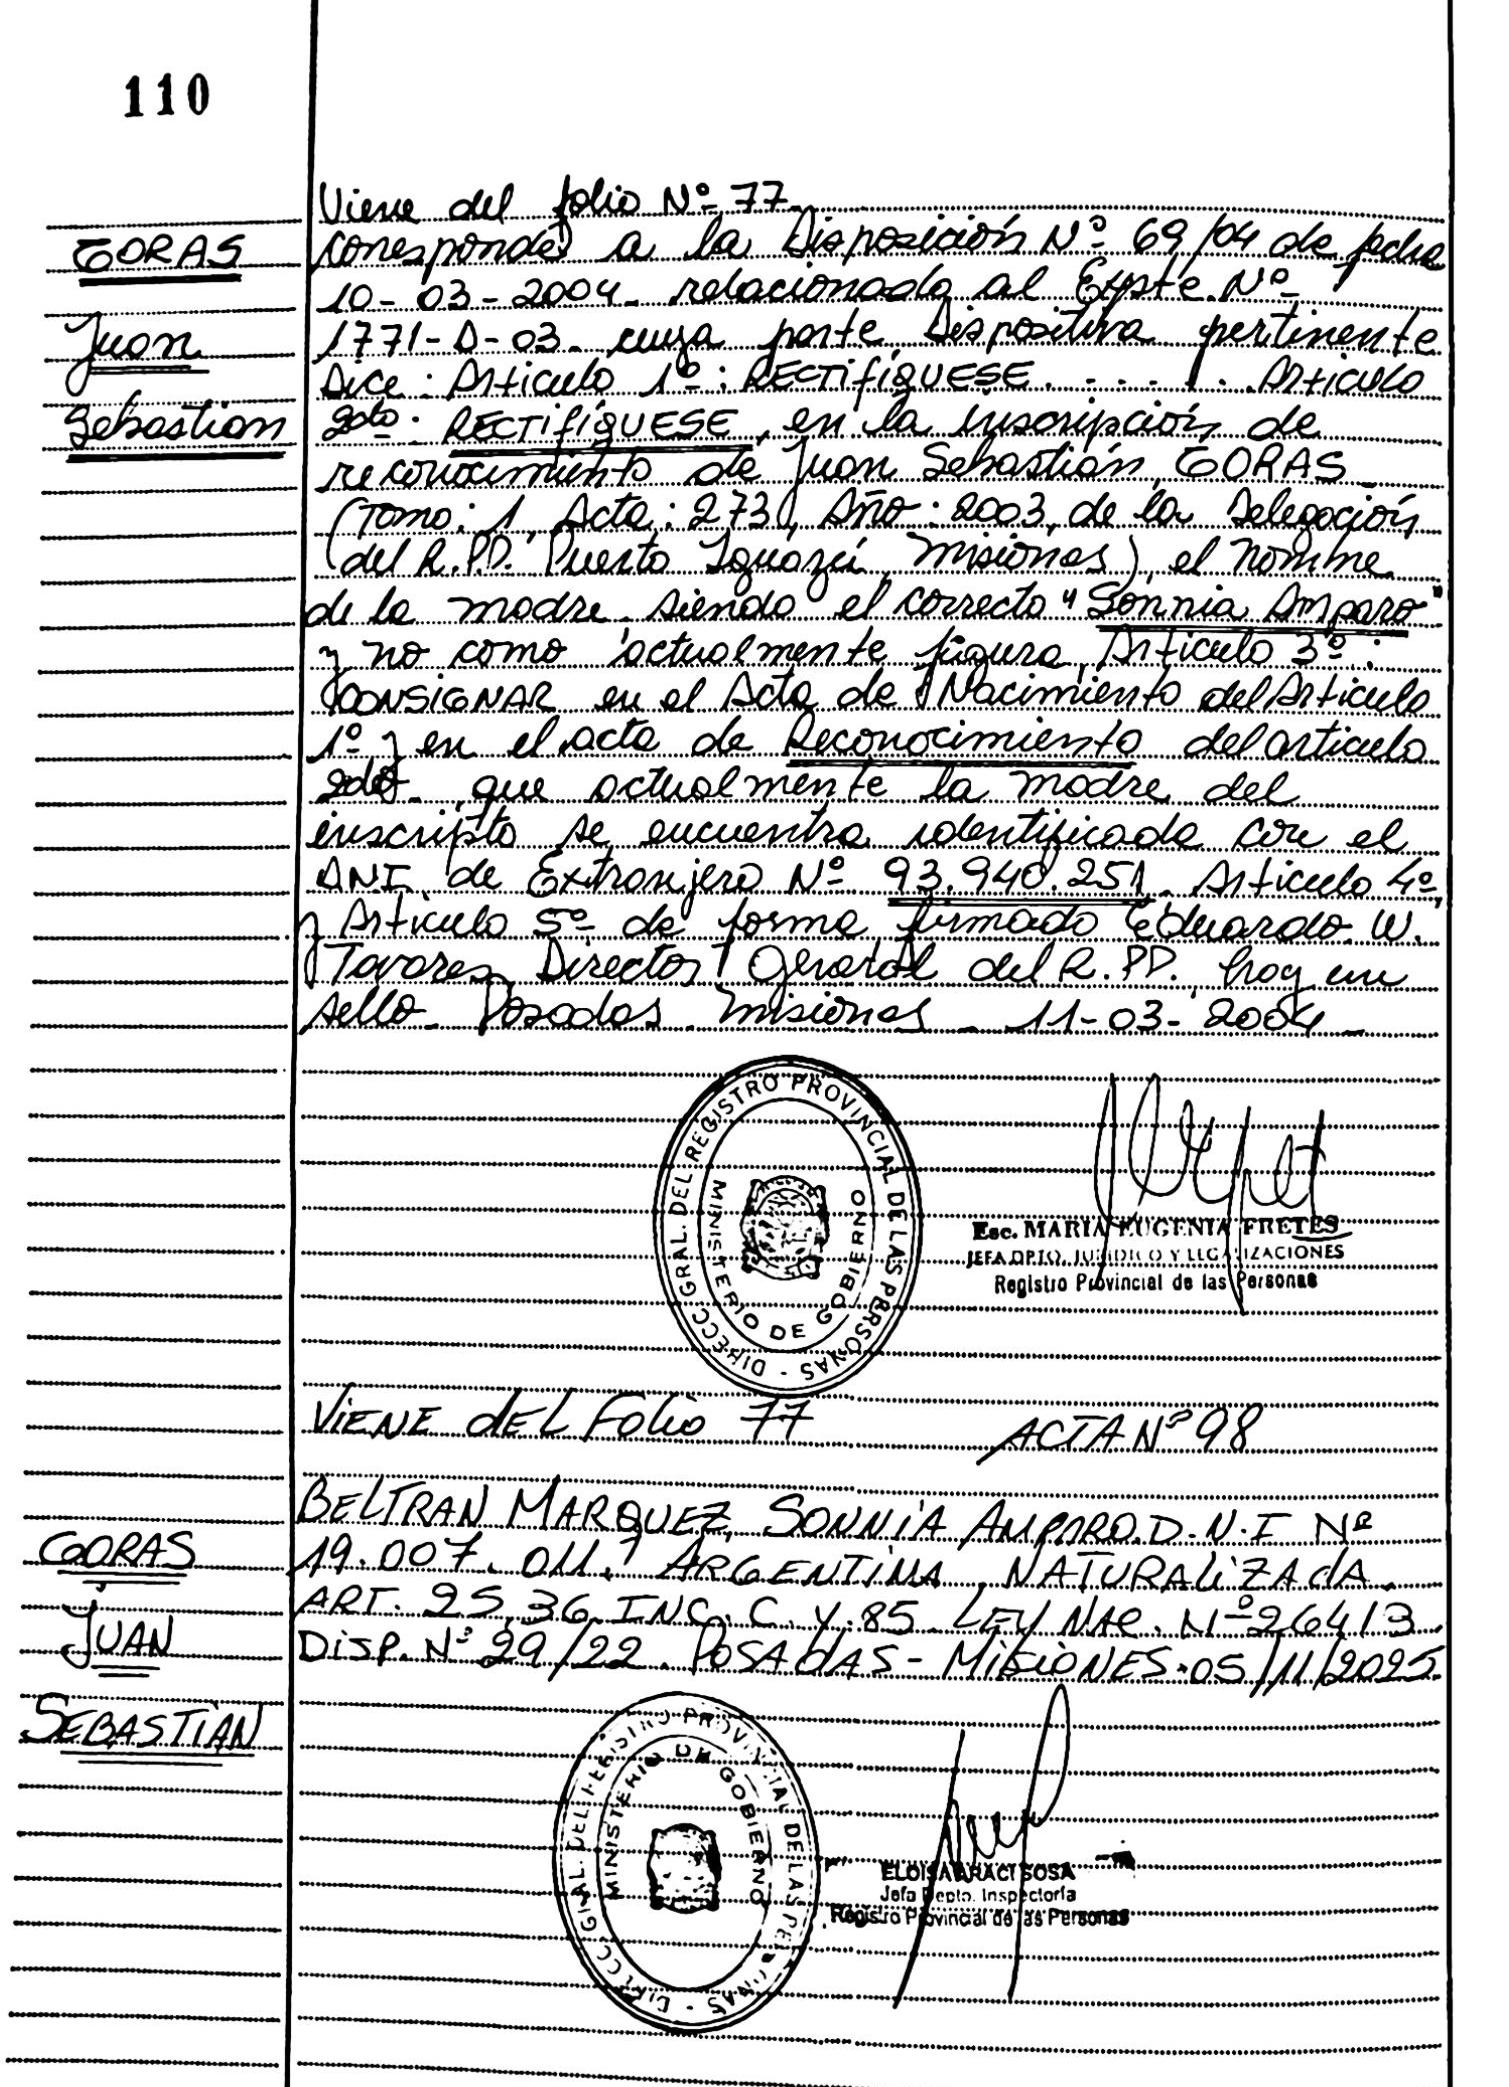 110
Viene del folio Nº 77
GORAS
corresponde a la Disposición Nº 69/04 de fecha
10-03-2004 relacionada al Expte. Nº
Juan
1771-D-03 cuya parte dispositiva pertinente
Dice: Artículo 1º: RECTIFÍQUESE . - - . . Artículo
Sebastian
2do: RECTIFÍQUESE, en la inscripción de
reconocimiento de Juan Sebastián GORAS
(Tomo: 1, Acta: 273, Año: 2003, de la Delegación
del R.P.P. Puerto Iguazú, Misiones), el nombre
de la madre siendo el correcto "Sonnia Amparo"
y no como actualmente figura, Artículo 3º:
CONSIGNAR en el Acta de Nacimiento del Artículo
1º y en el acta de Reconocimiento del artículo
2do que actualmente la madre del
inscripto se encuentra identificada con el
DNI de Extranjero Nº 93.940.251. Artículo 4º,
y Artículo 5º de forma firmado Eduardo W.
Tavares Director General del R.PP. hay un
sello. Posadas Misiones - 11-03-2004 -
DIRECC. GRAL. DEL REGISTRO PROVINCIAL DE LAS PERSONAS
MINISTERIO DE GOBIERNO
Esc. MARIA EUGENIA FRETES
JEFA DPTO. JURIDICO Y LEGALIZACIONES
Registro Provincial de las Personas
VIENE DEL FOLIO 77 ACTA Nº 98
BELTRAN MARQUEZ, SONNIA AMPARO. D.N.I Nº
GORAS
19.007.011. ARGENTINA, NATURALIZADA.
ART. 25, 36 INC. C. Y. 85. LEY NAC. Nº 26413.
JUAN
DISP. Nº 29/22. POSADAS - MISIONES. 05/11/2025.
SEBASTIAN
DIRECC. GRAL. DEL REGISTRO PROVINCIAL DE LAS PERSONAS
MINISTERIO DE GOBIERNO
ELOISA ARACI SOSA
Jefa Depto. Inspectoría
Registro Provincial de las Personas